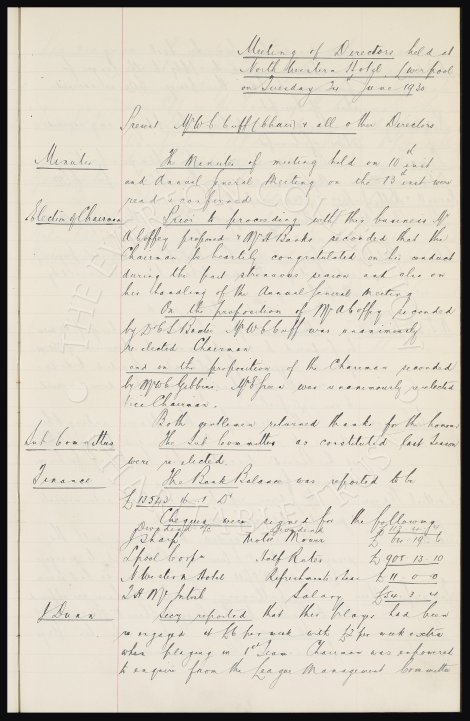 Meeting of Directors held at
North Western Hotel, Liverpool
on Tuesday June 1930
Present Mr W C Cuff (Chair) & all other Directors
Minutes The Minutes of meeting held on 10th inst
and Annual General Meeting on the 13th inst were
read & confirmed
Election of Chairman Prior to proceeding with this business Mr
A Coffey proposed & Mr A Banks seconded that the
Chairman be heartily congratulated on his conduct
during the past strenuous season and also on
his handling of the Annual General Meeting
On the proposition of Mr A Coffey seconded
by Dr C S Baxter Mr W C Cuff was unanimously
re elected Chairman
and on the proposition of the Chairman seconded
by Mr W C Gibbins Mr E Green was unanimously reelected
Vice Chairman.
Both gentlemen returned thanks for the honour
Sub Committees The Sub Committees as constituted last season
were re elected.
Finance The Bank Balance was reported to be
£13543 16 1 Dr
Cheques were signed for the following
Dividend a/c Dividend
J Sharp Motor Mower £ 60 19 6
L'pool Corpn Half Rates £ 908 13 10
N Western Hotel Refreshments £ 11 0 0
T H McIntosh Salary £54 3 4
J Dunn Secy reported that this player had been
re engaged at £6 per week with £2 per week extra
when playing in 1st Team. Chairman was empowered
to enquire from the League Management Committee